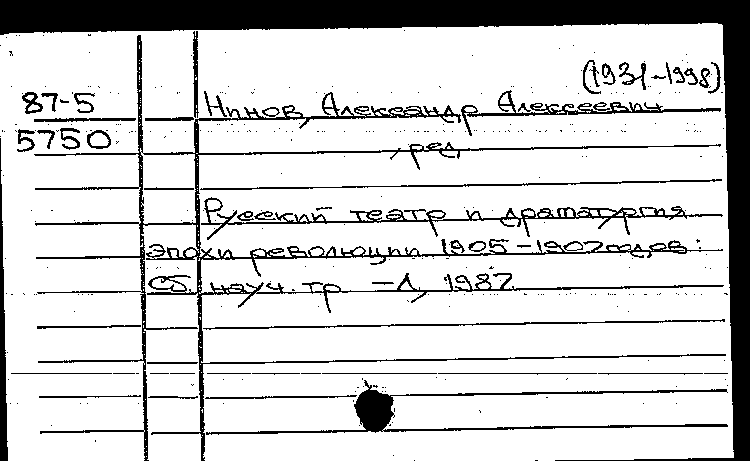 (1931-1998)
87-5 Нинов, Александр Алексеевич
5750 , ред,
Русский театр и драматургия
эпохи революции 1905-1907 годов :
Сб. науч. тр. - Л, 1987